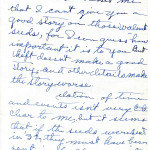 that I can't give you a
good story on those walnut
seeds, for I can guess how
important it is to you. But
theft doesn't make a good
story, and other details make
the story worse.
lation of time
and events isn't very
clear to me, but it seems
that if the seeds were sent
in
been